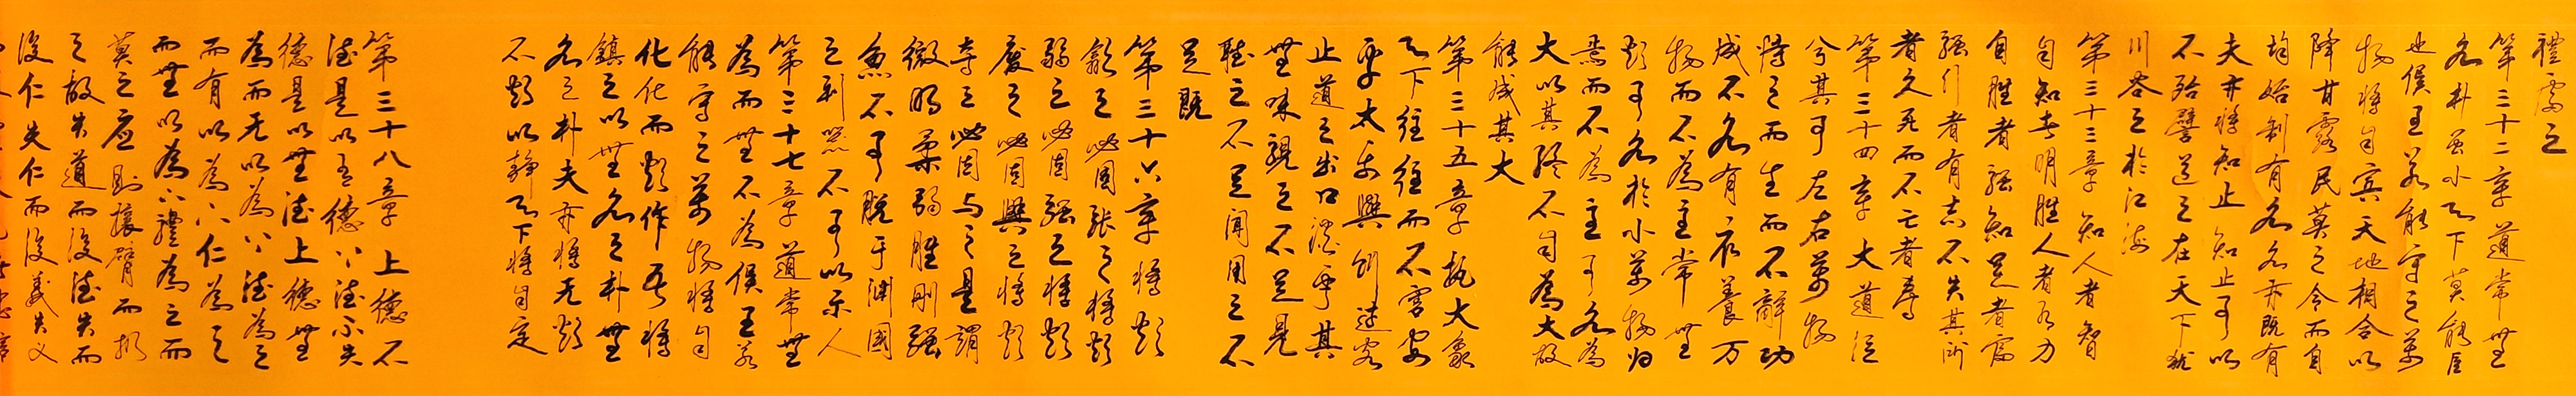 禮處之
第三十二章 道常無
名朴虽小天下莫能臣
也侯王若能守之萬
物將自宾天地相合以
降甘露民莫之令而自
均始制有名名亦既有
夫亦將知止知止可以
不殆譬道之在天下猶
川谷之於江海
第三十三章 知人者智
自知者明胜人者有力
自胜者强知足者富
强行者有志不失其所
者久死而不亡者寿
第三十四章 大道氾
兮其可左右萬物
恃之而生而不辭功
成不名有衣養万
物而不為主常無
欲可名於小萬物归
焉而不為主可名為
大以其終不自為大故
能成其大
第三十五章 執大象
天下往往而不害安
平太乐與餌过客
止道之出口淡乎其
無味視之不足見
聴之不足闻用之不
足既
第三十六章 將欲
歙之必固张之將欲
弱之必固强之將欲
废之必固興之將欲
夺之必固与之是謂
微明柔弱胜刚强
魚不可脱于渊國
之利器不可以示人
第三十七章 道常無
為而無不為侯王若
能守之萬物將自
化化而欲作吾將
鎮之以無名之朴無
名之朴夫亦將无欲
不欲以静天下將自定
第三十八章 上德不
德是以有德下德不失
德是以無德上德無
為而无以為下德為之
而有以為上仁為之
而無以為上禮為之而
莫之应則攘臂而扔
之故失道而後德失而
後仁失仁而後義失义